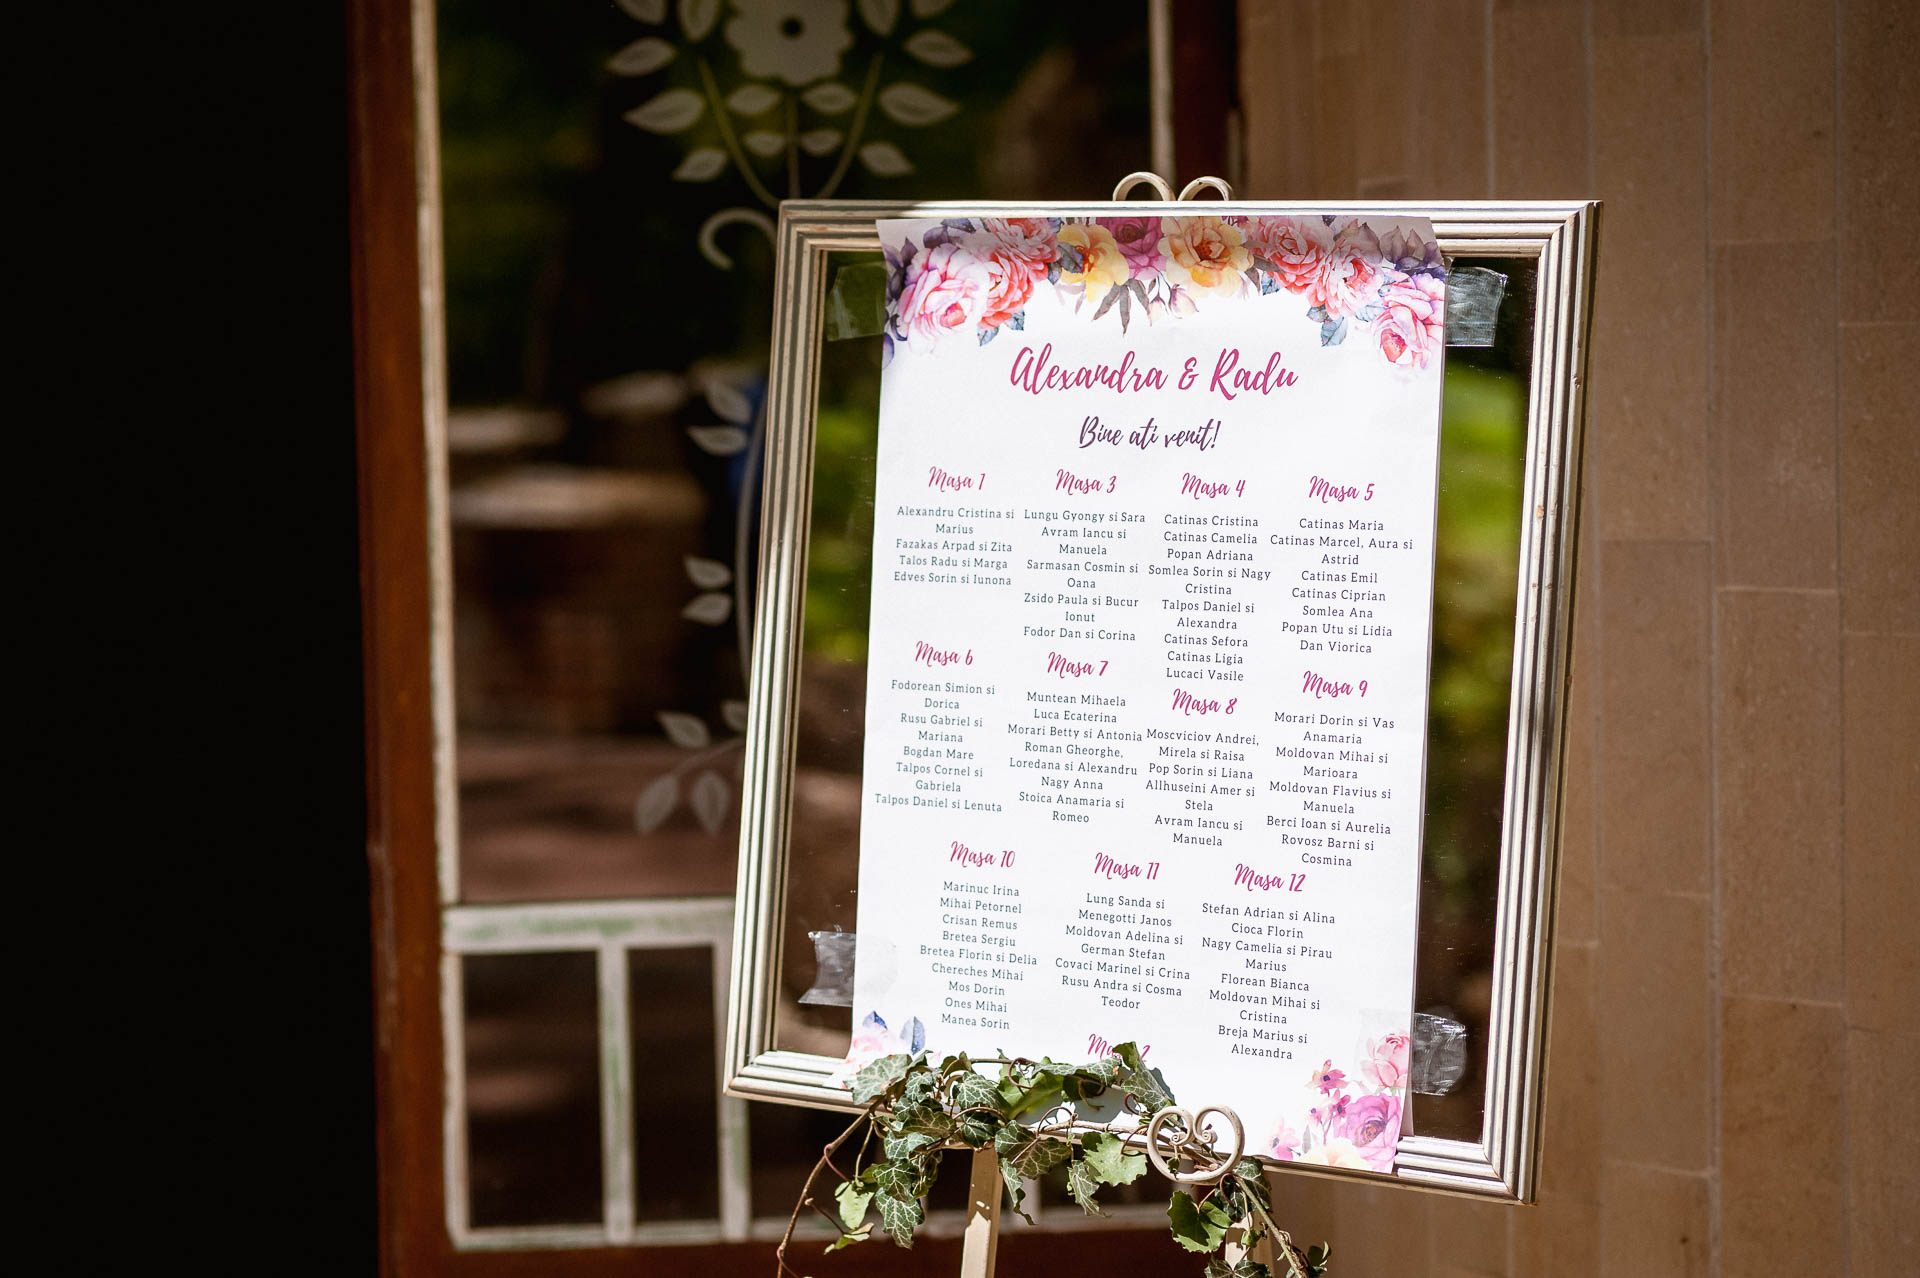 Alexandra & Radu
Bine ati venit!
Masa 1
Alexandru Cristina si
Marius
Fazakas Arpad si Zita
Talos Radu si Marga
Edves Sorin si Iunona
Masa 3
Lungu Gyongy si Sara
Avram Iancu si
Manuela
Sarmasan Cosmin si
Oana
Zsido Paula si Bucur
Ionut
Fodor Dan si Corina
Masa 4
Catinas Cristina
Catinas Camelia
Popan Adriana
Somlea Sorin si Nagy
Cristina
Talpos Daniel si
Alexandra
Catinas Sefora
Catinas Ligia
Lucaci Vasile
Masa 5
Catinas Maria
Catinas Marcel, Aura si
Astrid
Catinas Emil
Catinas Ciprian
Somlea Ana
Popan Utu si Lidia
Dan Viorica
Masa 6
Fodorean Simion si
Dorica
Rusu Gabriel si
Mariana
Bogdan Mare
Talpos Cornel si
Gabriela
Talpos Daniel si Lenuta
Masa 7
Muntean Mihaela
Luca Ecaterina
Morari Betty si Antonia
Roman Gheorghe,
Loredana si Alexandru
Nagy Anna
Stoica Anamaria si
Romeo
Masa 8
Moscviciov Andrei,
Mirela si Raisa
Pop Sorin si Liana
Allhuseini Amer si
Stela
Avram Iancu si
Manuela
Masa 9
Morari Dorin si Vas
Anamaria
Moldovan Mihai si
Marioara
Moldovan Flavius si
Manuela
Berci Ioan si Aurelia
Rovosz Barni si
Cosmina
Masa 10
Marinuc Irina
Mihai Petornel
Crisan Remus
Bretea Sergiu
Bretea Florin si Delia
Chereches Mihai
Mos Dorin
Ones Mihai
Manea Sorin
Masa 11
Lung Sanda si
Menegotti Janos
Moldovan Adelina si
German Stefan
Covaci Marinel si Crina
Rusu Andra si Cosma
Teodor
Masa 12
Stefan Adrian si Alina
Cioca Florin
Nagy Camelia si Pirau
Marius
Florean Bianca
Moldovan Mihai si
Cristina
Breja Marius si
Alexandra